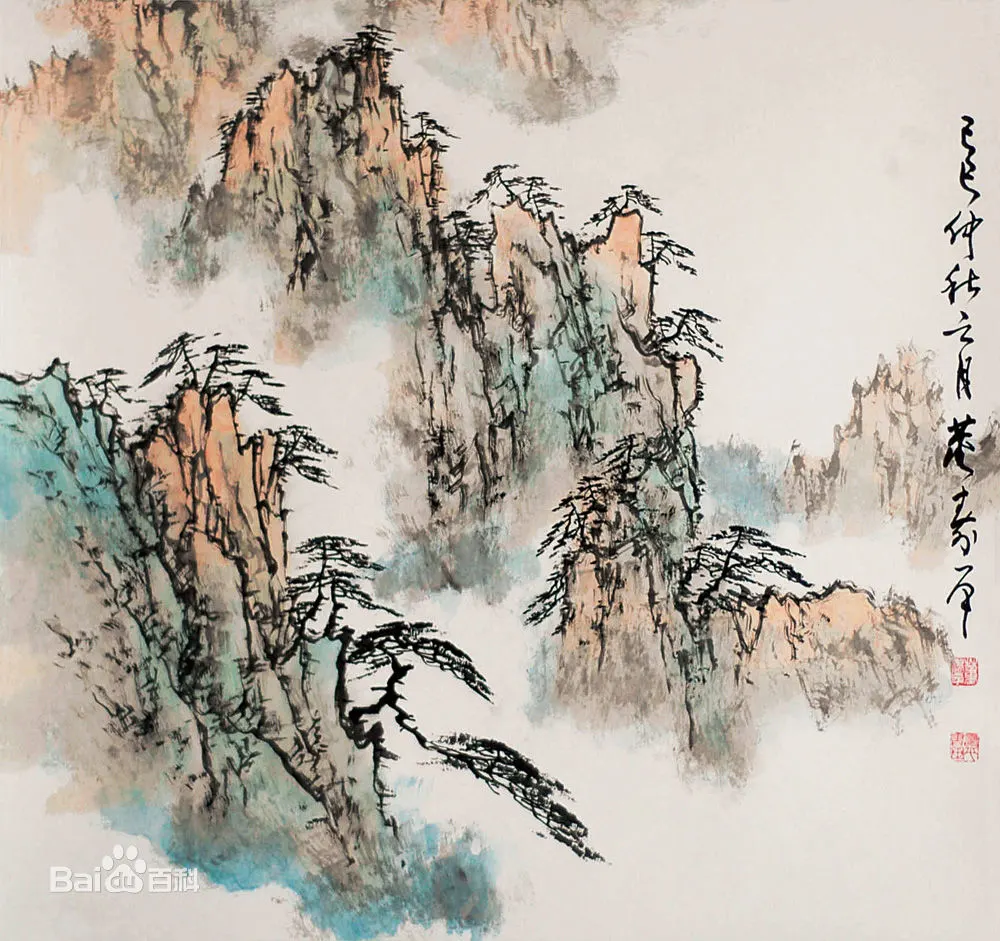 己巳仲秋之月董寿平
Bai百科